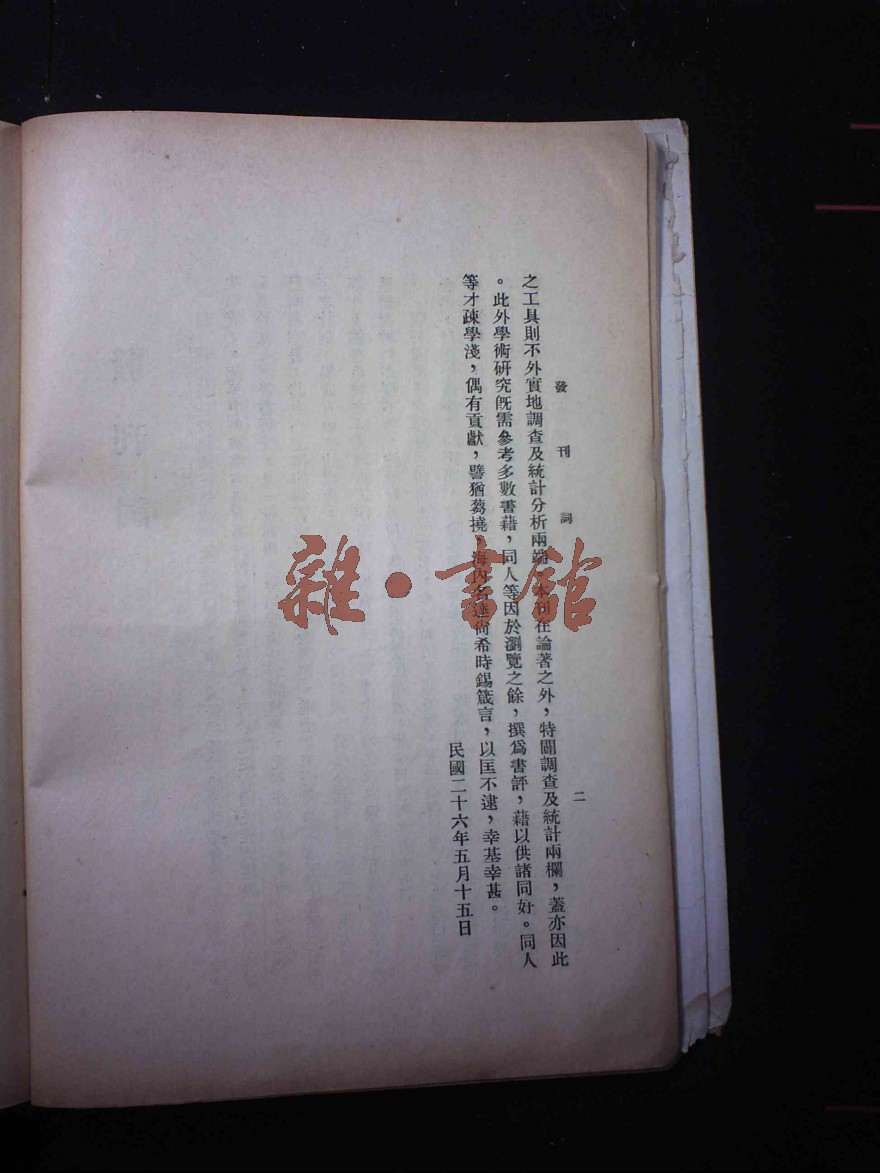 發刊詞
二
之工具則不外實地調查及統計分析兩端，本刊在論著之外，特闢調查及統計兩欄，蓋亦因此
。此外學術研究旣需參考多數書藉，同人等因於瀏覽之餘，撰爲書評，藉以供諸同好。同人
等才疎學淺，偶有貢獻，譬猶蒭撓，海內名達尙希時錫箴言，以匡不逮，幸基幸甚。
民國二十六年五月十五日
雜·書館